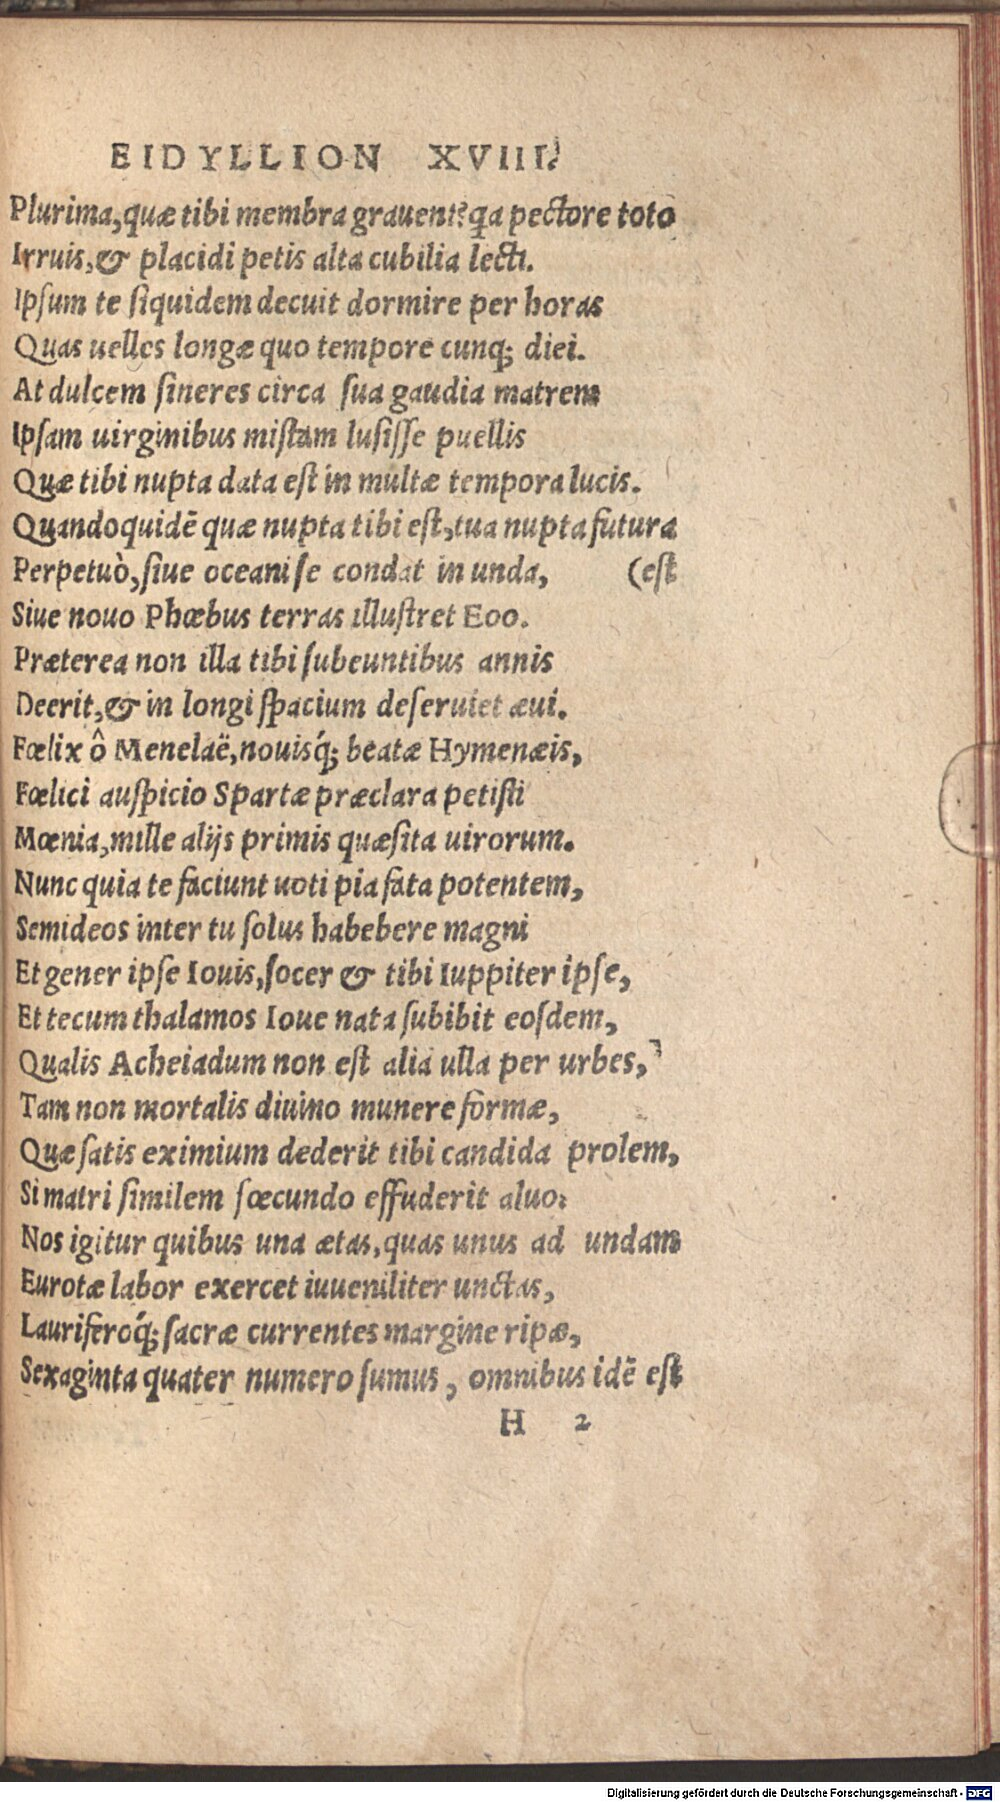 EIDYLLION XVIII.
Plurima, quæ tibi membra grauent? qa pectore toto
Irruis, & placidi petis alta cubilia lecti.
Ipsum te siquidem decuit dormire per horas
Quas uelles longæ quo tempore cunq; diei.
At dulcem sineres circa sua gaudia matrem
Ipsam uirginibus mistam lusisse puellis
Quæ tibi nupta data est in multæ tempora lucis.
Quandoquidē quæ nupta tibi est, tua nupta futura
Perpetuò, siue oceani se condat in unda, (est
Siue nouo Phœbus terras illustret Eoo.
Præterea non illa tibi subeuntibus annis
Deerit, & in longi spacium deseruiet æui.
Fœlix ô Menelaë, nouisq́; beatæ Hymenæis,
Fœlici auspicio Spartæ præclara petisti
Mœnia, mille alijs primis quæsita uirorum.
Nunc quia te faciunt uoti pia fata potentem,
Semideos inter tu solus habebere magni
Et gener ipse Iouis, socer & tibi Iuppiter ipse,
Et tecum thalamos Ioue nata subibit eosdem,
Qualis Acheiadum non est alia ulla per urbes,
Tam non mortalis diuino munere formæ,
Quæ satis eximium dederit tibi candida prolem,
Si matri similem fœcundo effuderit aluo:
Nos igitur quibus una ætas, quas unus ad undam
Eurotæ labor exercet iuueniliter unctas,
Lauriferoq́; sacræ currentes margine ripæ,
Sexaginta quater numero sumus, omnibus idē est
H 2
Digitalisierung gefördert durch die Deutsche Forschungsgemeinschaft - DFG